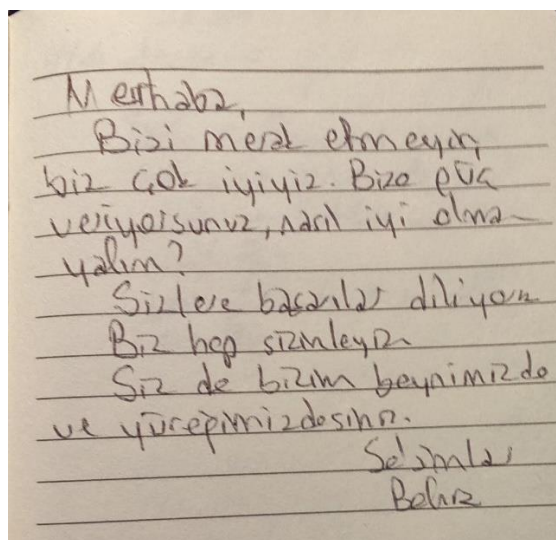 Merhaba,
Bizi merak etmeyin,
biz çok iyiyiz. Bize güç
veriyorsunuz, nasıl iyi olma-
yalım?
Sizlere başarılar diliyorum
Biz hep sizinleyiz.
Siz de bizim beynimizde
ve yüreğimizdesiniz.
Selamlar
Behrz